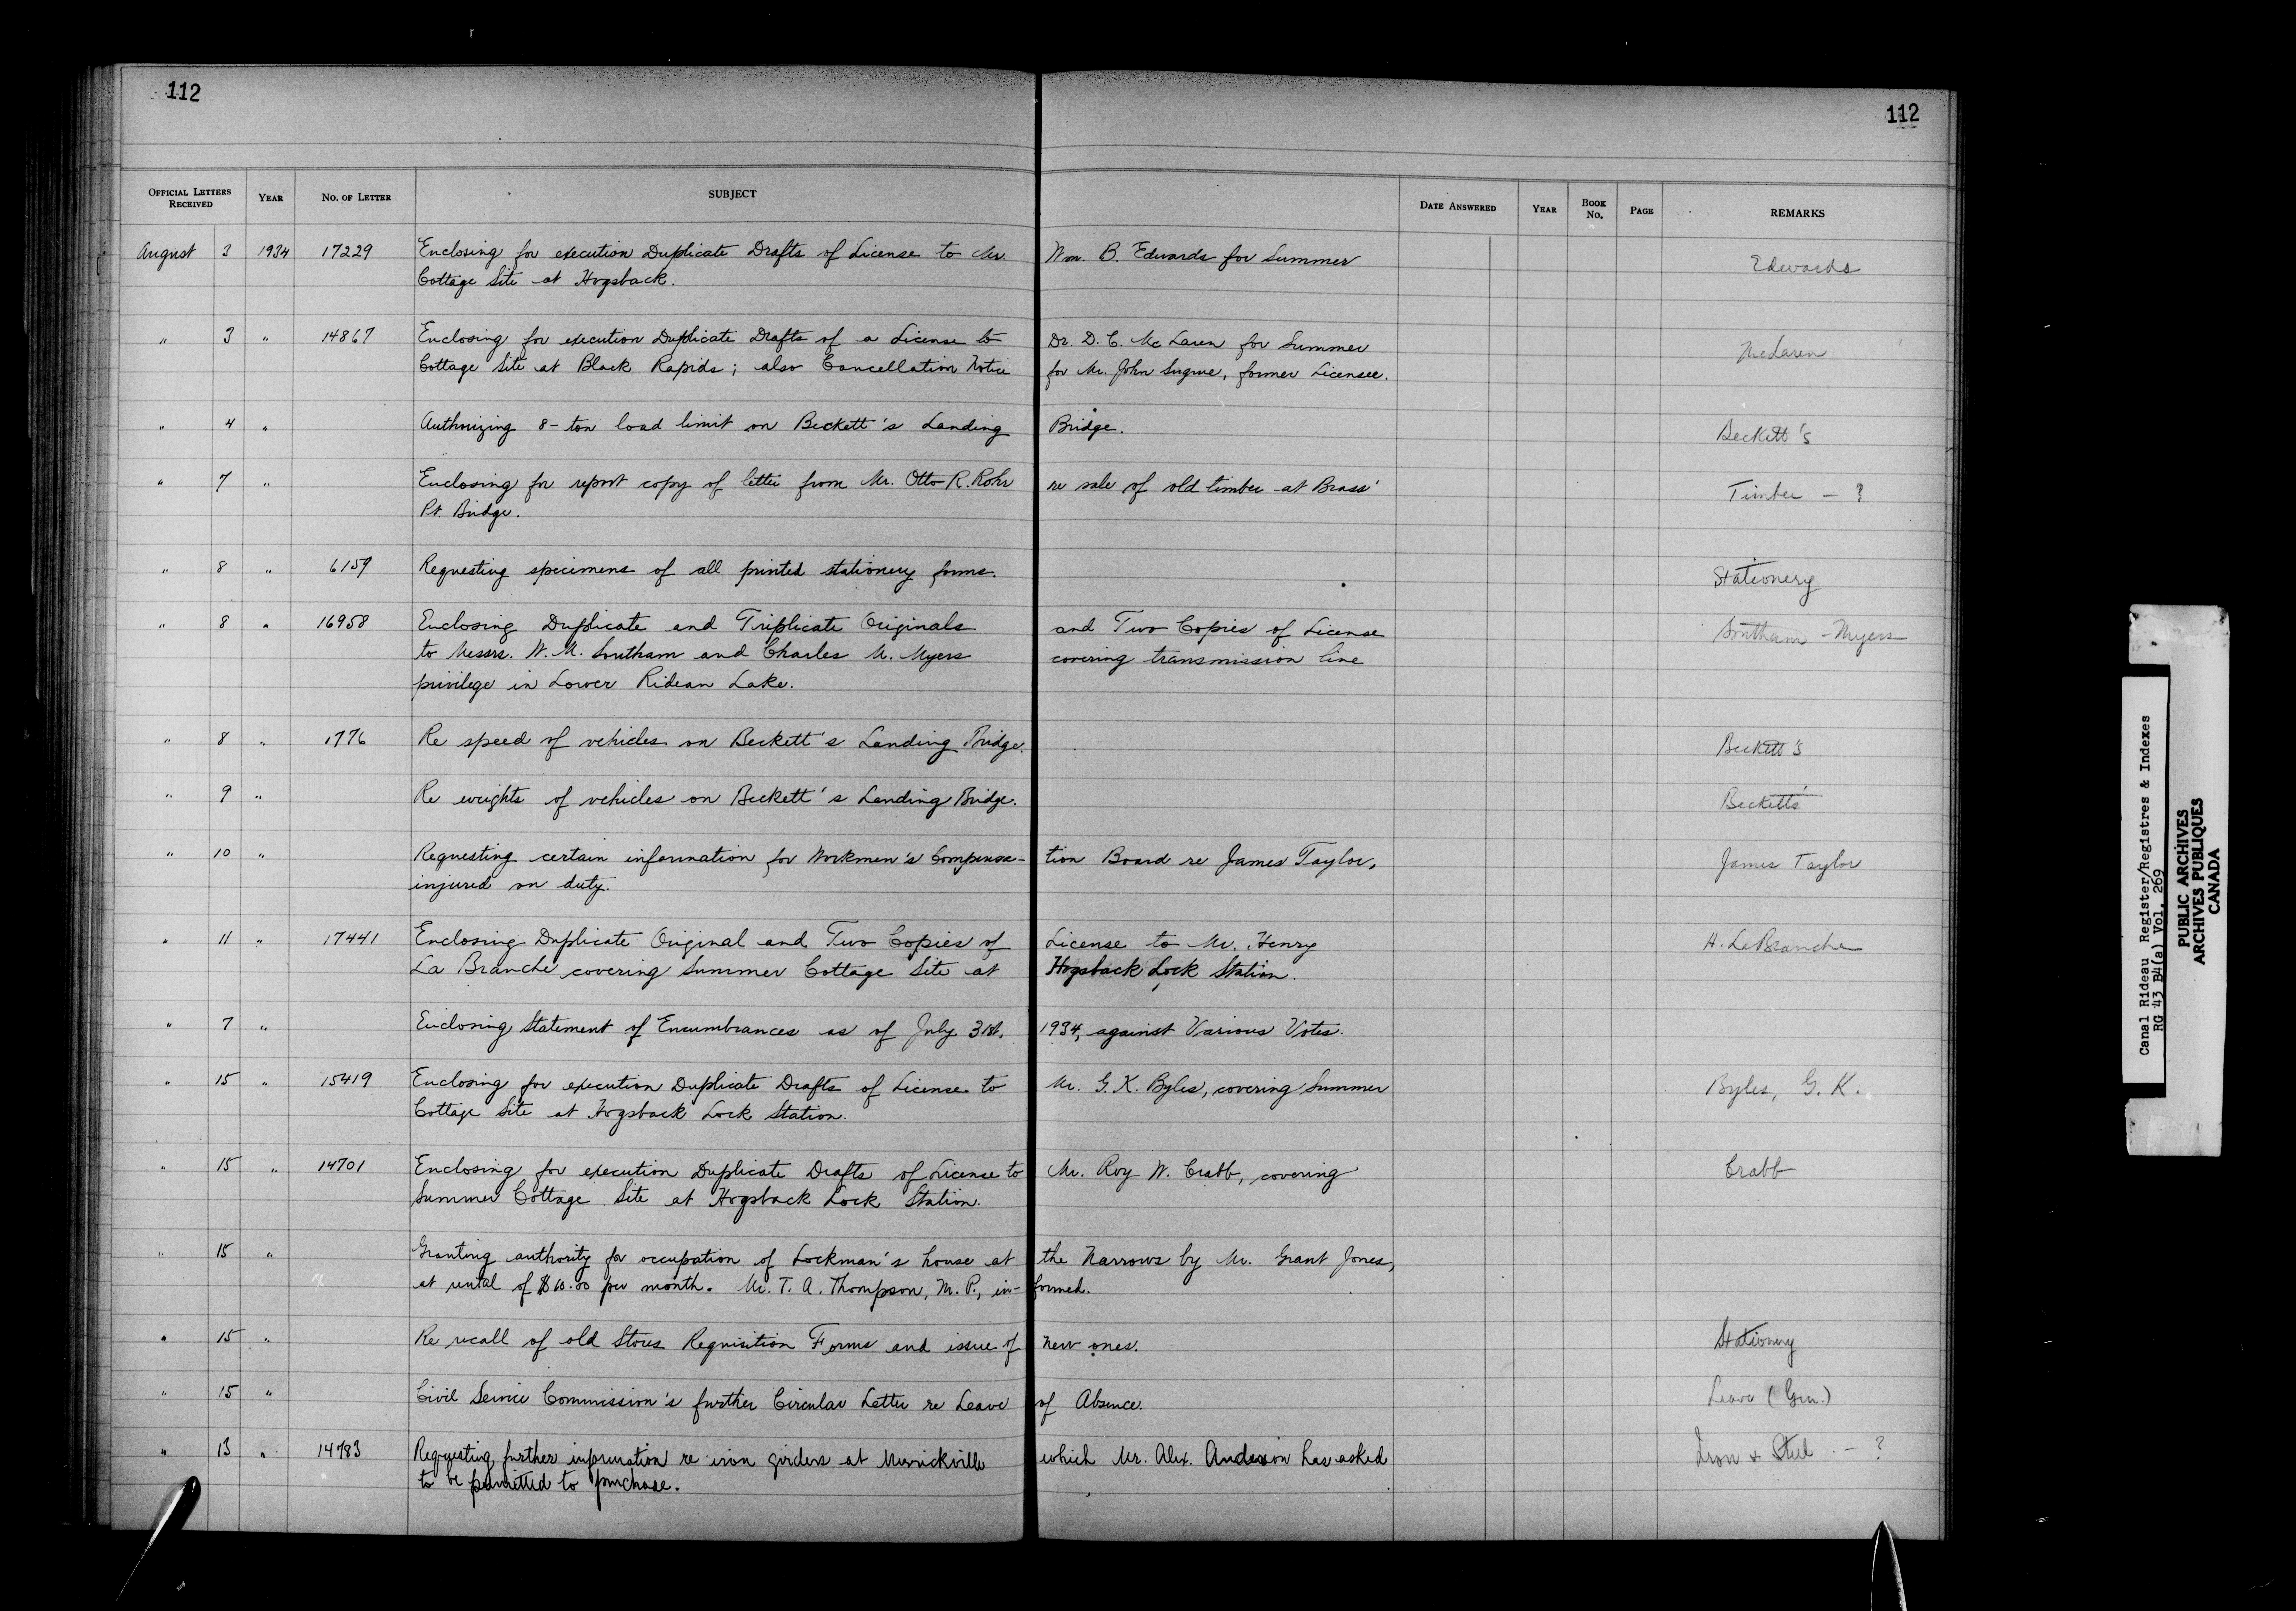 112
112
OFFICIAL LETTERS RECEIVED YEAR NO. OF LETTER SUBJECT DATE ANSWERED YEAR BOOK NO. PAGE REMARKS
August 3 1934 17229 Enclosing for execution Duplicate Drafts of License to Mr. Wm. B. Edwards for Summer Edwards
Cottage Site at Hogsback.
" 3 " 14867 Enclosing for execution Duplicate Drafts of a License to Dr. D. C. McLaren for Summer McLaren
Cottage Site at Black Rapids; also Cancellation Notice for Mr. John Sugrue, former Licensee.
" 4 " Authorizing 8-ton load limit on Beckett's Landing Bridge. Beckett's
" 7 " Enclosing for report copy of letter from Mr. Otto R. Rohr re sale of old timber at Brass' Timber - ?
Pt. Bridge.
" 8 " 6159 Requesting specimens of all printed stationery forms. Stationery
" 8 " 16958 Enclosing Duplicate and Triplicate Originals and Two Copies of License Southam - Myers
to Messrs. W. M. Southam and Charles M. Myers covering transmission line
privilege in Lower Rideau Lake.
" 8 " 1776 Re speed of vehicles on Beckett's Landing Bridge. Beckett's
" 9 " Re weights of vehicles on Beckett's Landing Bridge. Beckett's
" 10 " Requesting certain information for Workmen's Compensa- tion Board re James Taylor, James Taylor
injured on duty.
" 11 " 17441 Enclosing Duplicate Original and Two Copies of License to Mr. Henry H. LaBranche
La Branche covering Summer Cottage Site at Hogsback Lock Station.
" 7 " Enclosing Statement of Encumbrances as of July 31st, 1934, against Various Votes.
" 15 " 15419 Enclosing for execution Duplicate Drafts of License to Mr. G. K. Byles, covering Summer Byles, G. K.
Cottage Site at Hogsback Lock Station.
" 15 " 14701 Enclosing for execution Duplicate Drafts of License to Mr. Roy W. Crabb, covering Crabb
Summer Cottage Site at Hogsback Lock Station.
" 15 " Granting authority for occupation of Lockman's house at the Narrows by Mr. Grant Jones,
at rental of $10.00 per month. Mr. T. A. Thompson, M. P., in- formed.
" 15 " Re recall of old Stores Requisition Forms and issue of new ones. Stationery
" 15 " Civil Service Commission's further Circular Letter re Leave of Absence. Leave (Gen.)
" 13 " 14783 Requesting further information re iron girders at Merrickville which Mr. Alex. Anderson has asked Iron & Steel - ?
to be permitted to purchase.
Canal Rideau Register/Registres & Indexes
RG 43 B4(a) Vol. 269
PUBLIC ARCHIVES
ARCHIVES PUBLIQUES
CANADA